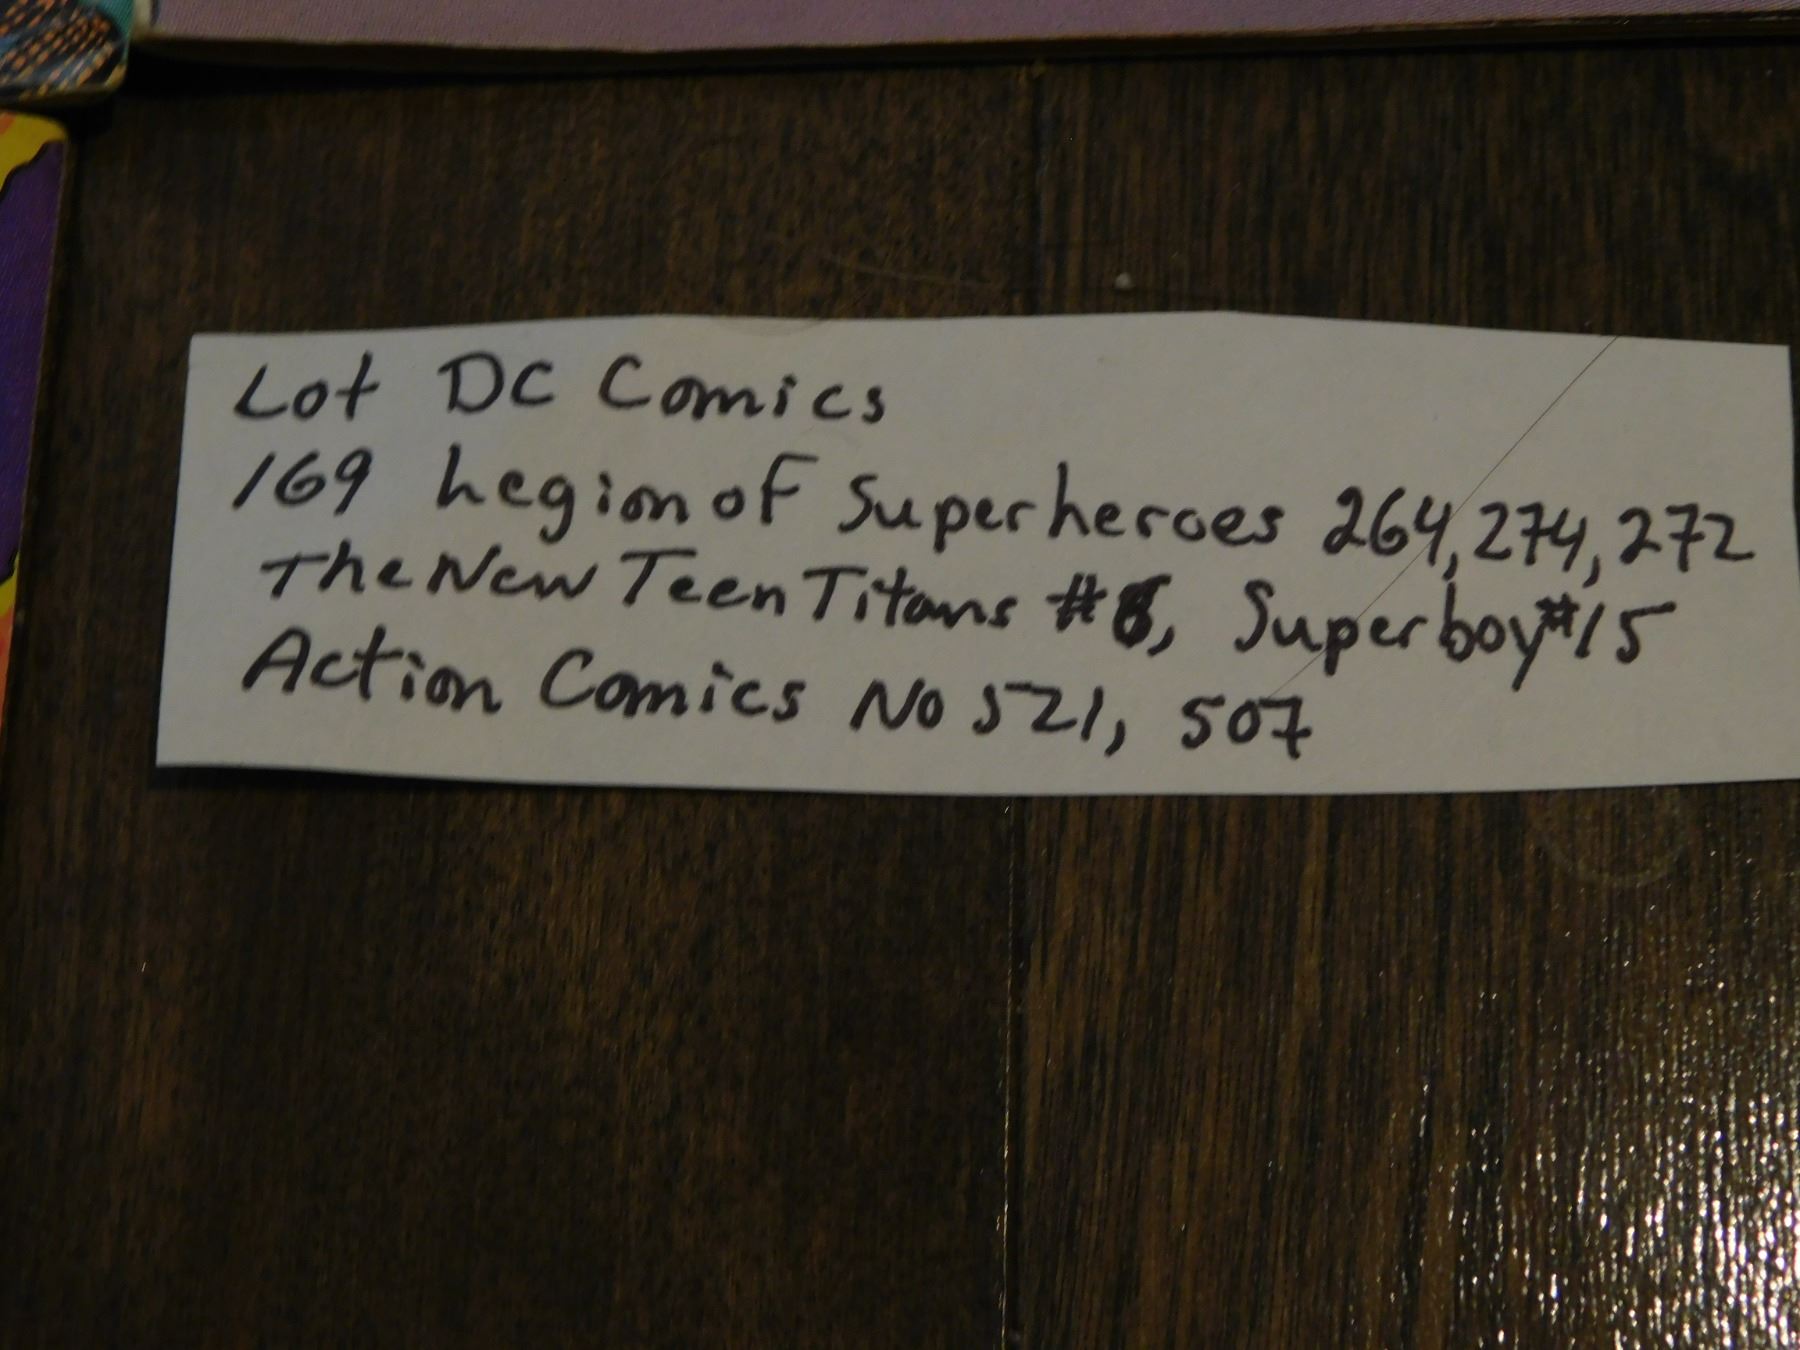 Lot DC Comics
169 Legion of Superheroes 264, 274, 272
The New Teen Titans #6, Superboy #15
Action Comics No 521, 507